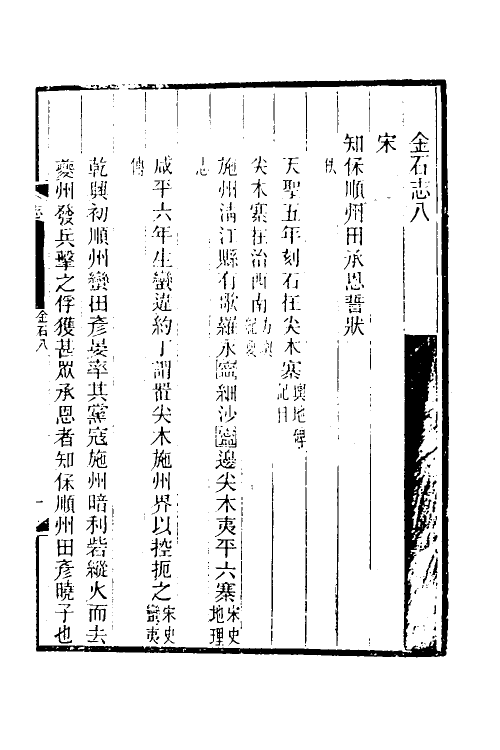 金石志八
宋
知保順州田承恩誓狀
佚
天聖五年刻石在尖木寨輿地碑記目
尖木寨在治西南方輿紀要
施州清江縣有歌羅永寧細沙寧邊尖木夷平六寨宋史地理
志
咸平六年生蠻違約丁謂置尖木施州界以控扼之宋史蠻夷
傳
乾興初順州蠻田彥晏率其黨寇施州暗利砦縱火而去
夔州發兵擊之俘獲甚眾承恩者知保順州田彥曉子也
志
金石八
一